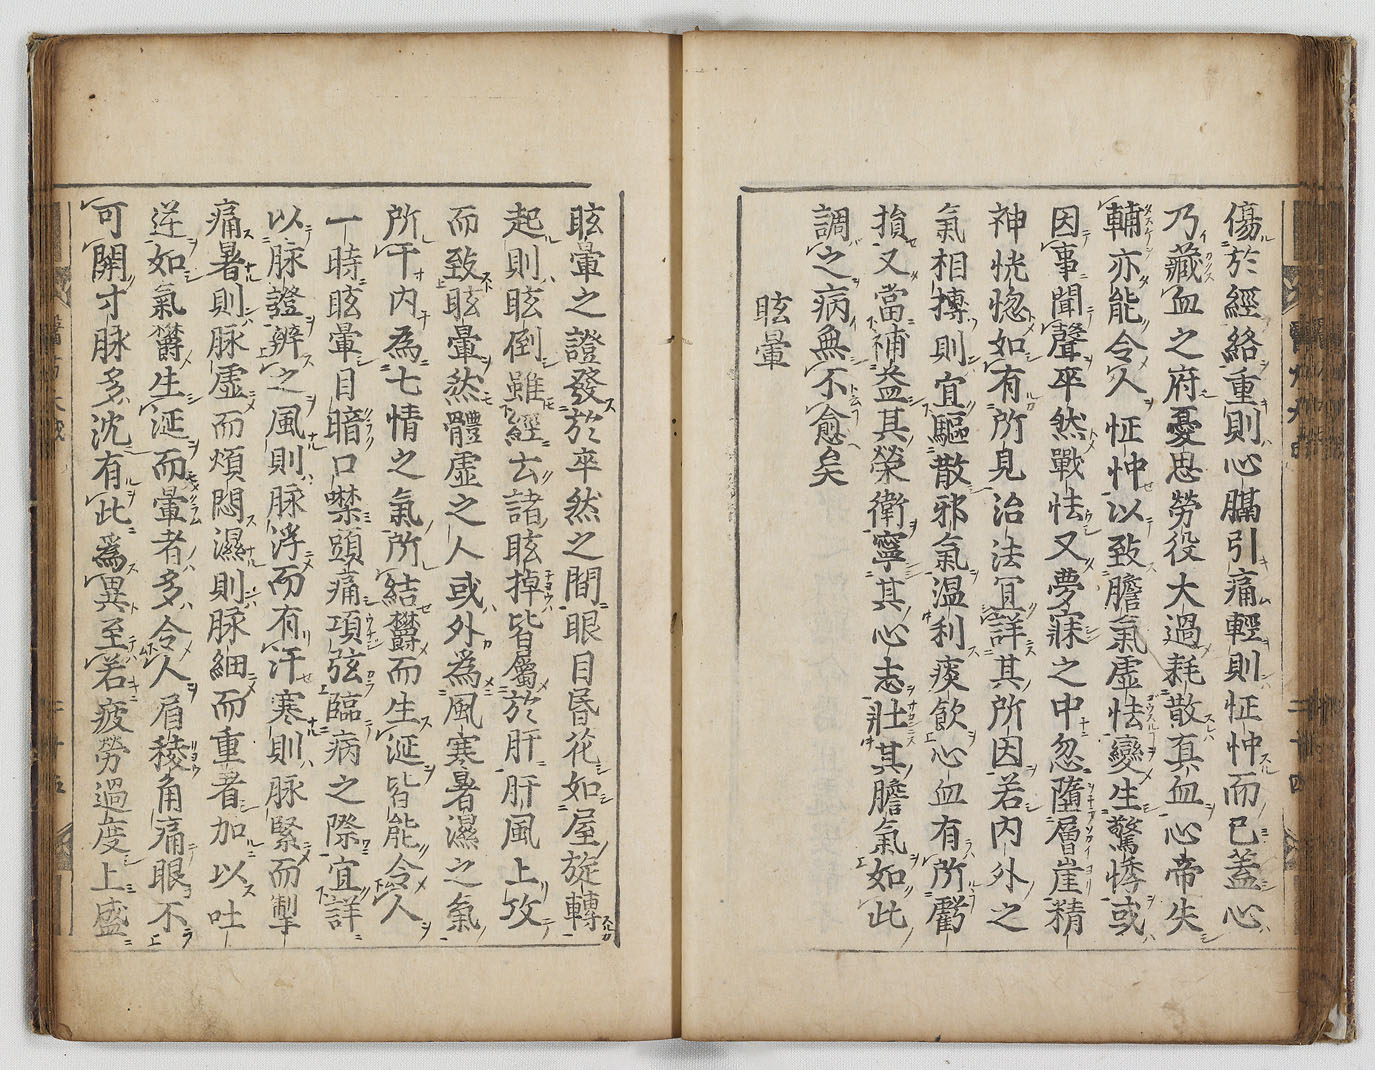 傷於經絡重則心膈引痛輕則怔忡而已蓋心
乃藏血之府憂思勞役大過耗散真血心帝失
輔亦能令人怔忡以致膽氣虛怯變生驚悸或
因事聞聲卒然戰怯又夢寐之中忽墮層崖精
神恍惚如有所見治法宜詳其所因若內外之
氣相摶則宜驅散邪氣温利痰飲心血有所虧
損又當補益其榮衛寧其心志壯其膽氣如此
調之病無不愈矣
眩暈
眩暈之證發於卒然之間眼目昏花如屋旋轉
起則眩倒雖經云諸眩掉皆屬於肝肝風上攻
而致眩暈然體虛之人或外為風寒暑濕之氣
所干内為七情之氣所結欝而生涎皆能令人
一時眩暈目暗口噤頭痛項弦臨病之際宜詳
以脉證辨之風則脉浮而有汗寒則脉緊而掣
痛暑則脉虛而煩悶濕則脉細而重者加以吐
逆如氣欝生涎而暈者多令人眉稜角痛眼不
可開寸脉多沈有此爲異至若疲勞過度上盛